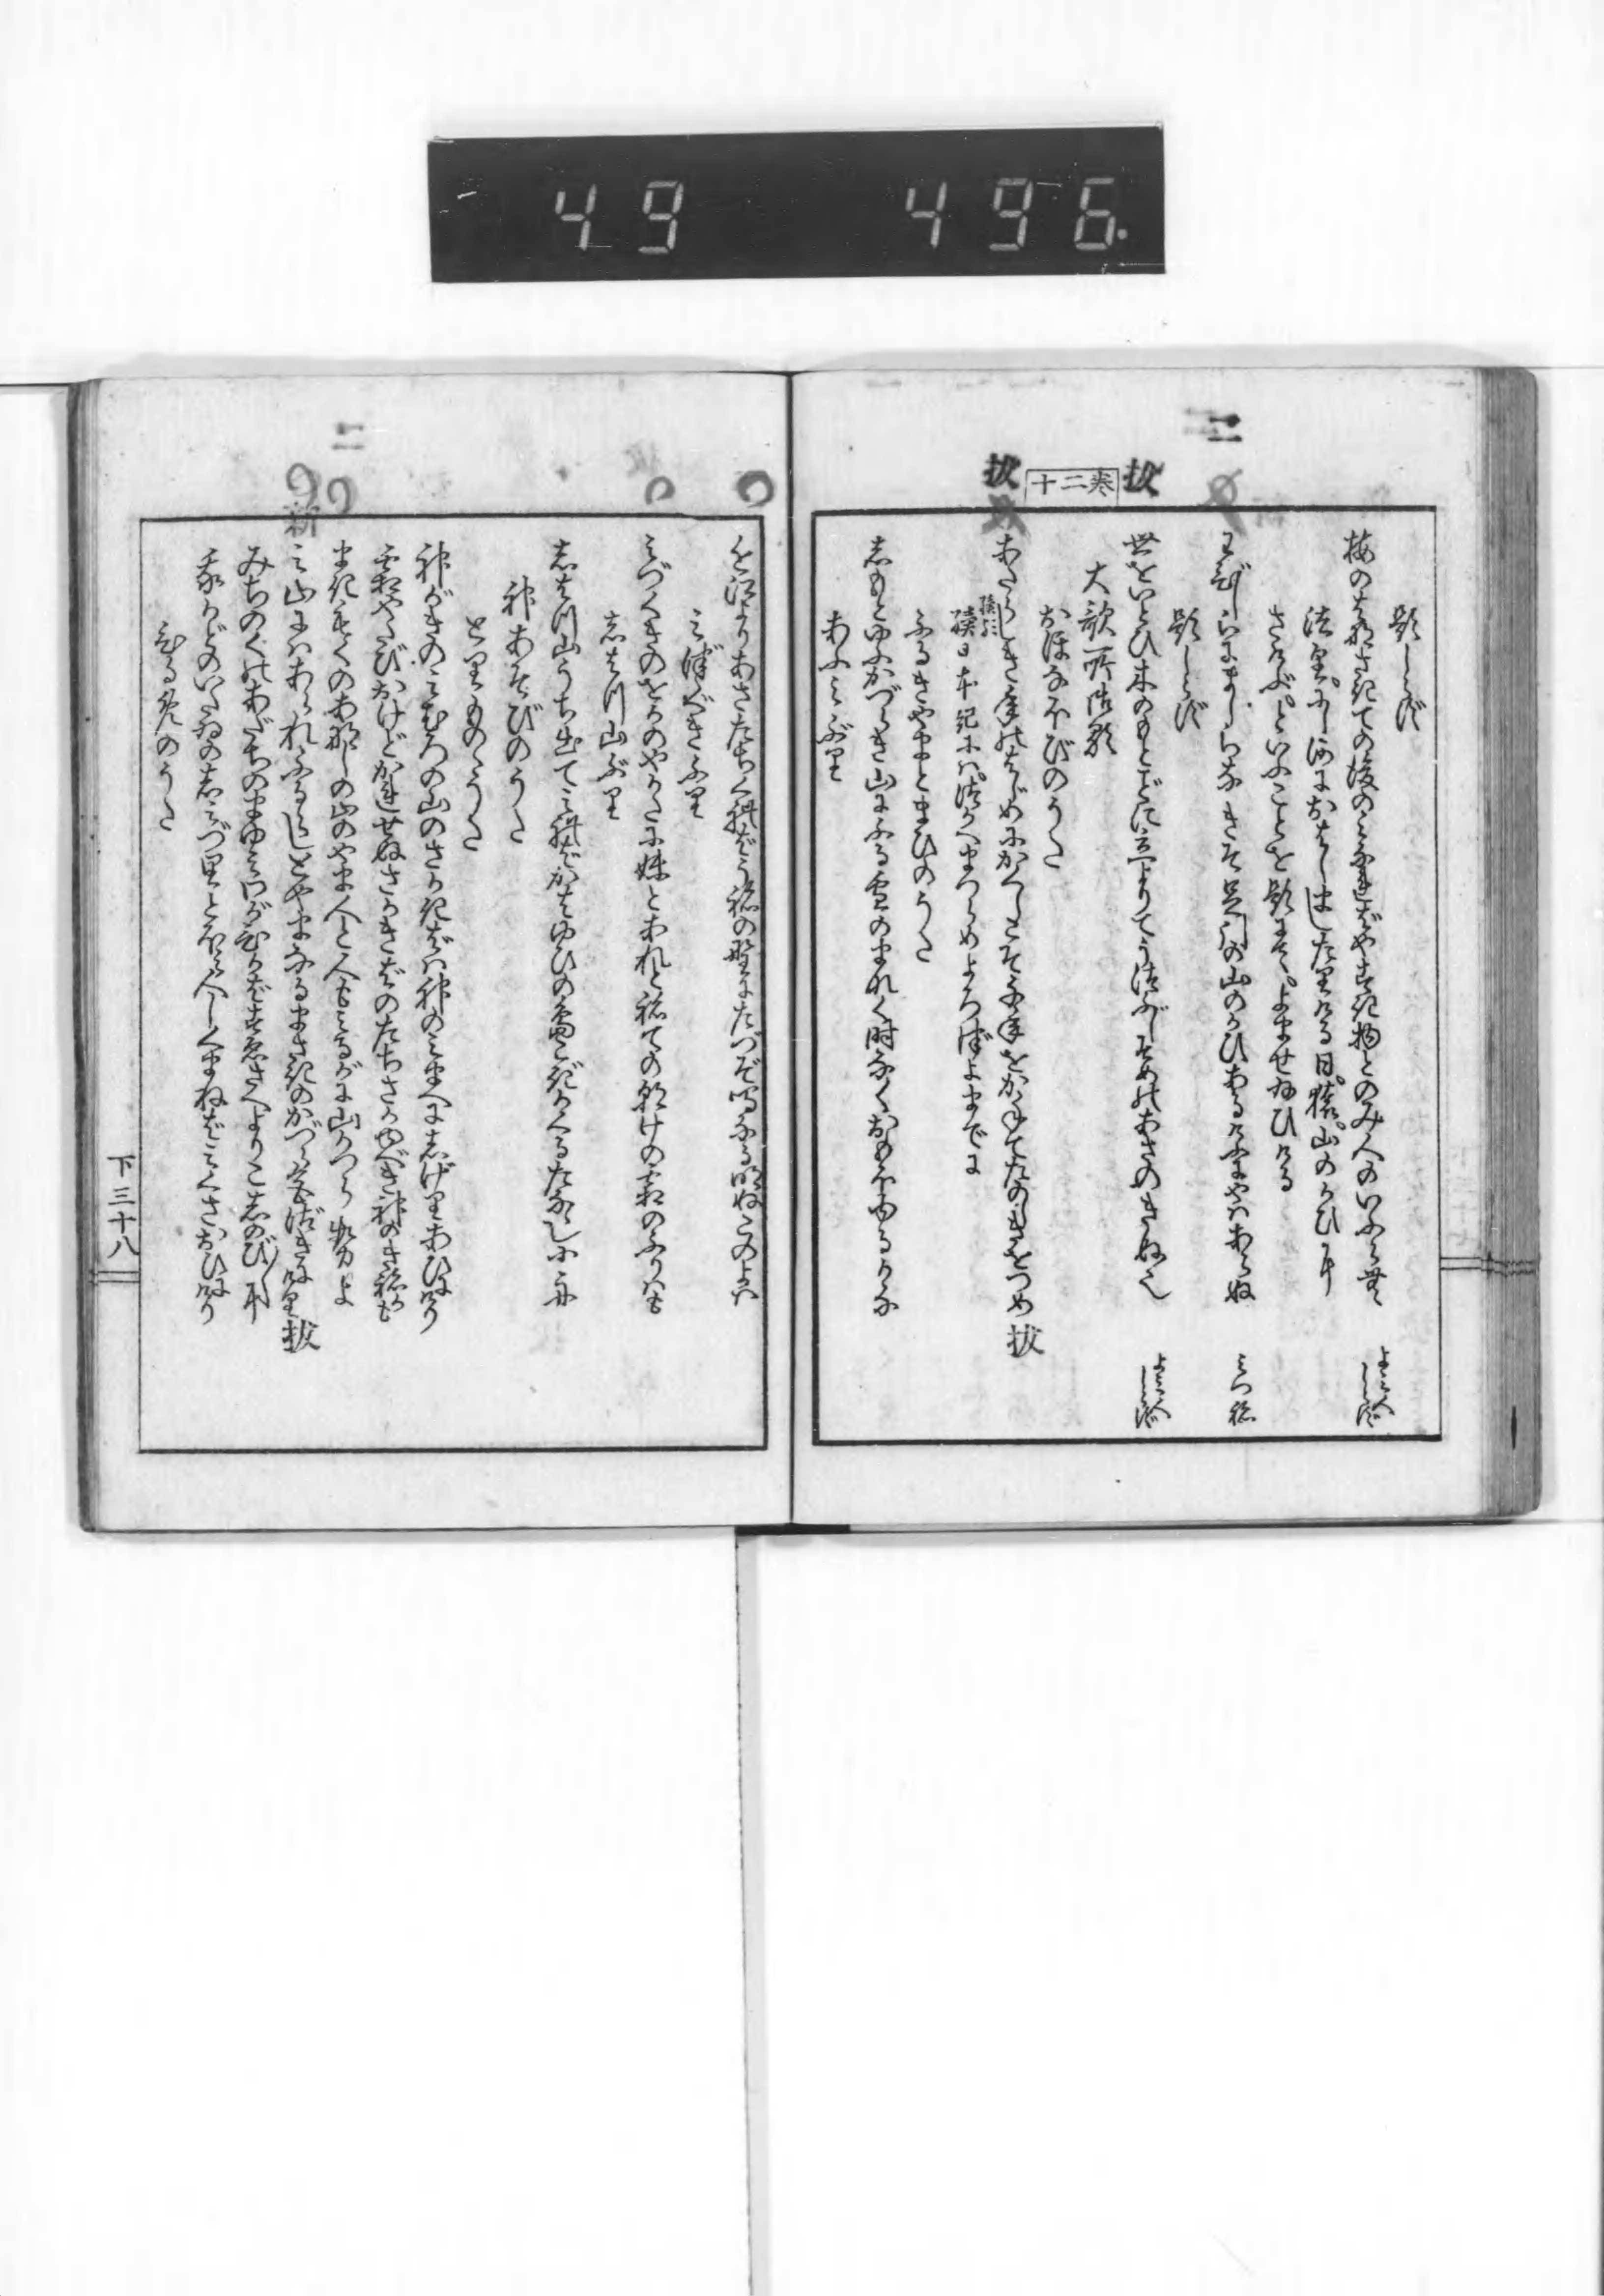 49 496.
二
抜
巻二十
抜
題しらず
梅の花さきての後のみなればやすき物とのみ人のいふらむ
よみ人しらず
法皇にし河におはしましたりける日猿山のかひに
さけぶといふことを題にて、よませ給ひける
わびしらにましらななきそ足引の山のかひあるけふにやはあらぬ
みつ祢
題しらず
世をいとひ木のもとごとに立よりてうつぶしぞめのあさのきぬ也
よみ人しらず
大歌所御歌
おほなほびのうた
あたらしき年のはじめにかくしこそ千年をかねてたのしきをつめ 抜
続日本紀には、つかへまつらめよろづよまでに
ふるきやまとまひのうた
しもとゆふかづらき山にふる雪のまなく時なくおもほゆるかな
あふみぶり
二
新
を江よりあさたちくればうねの野にたづぞ鳴なる明ぬこのよは
みづぐきふり
みづくきのをかのやかたに妹とあれとねての朝けの霜のふりはも
しはつ山ぶり
しはつ山うち出てみればかさゆひの島こぎかくるたななし小舟
神あそびのうた
とりものゝうた
神がきのみむろの山のさかきばは神のみまへにしげりあひにけり
霜やたびおけどかれせぬさかきばのたちさかゆべき神のきねかも
まきもくのあなしの山のやま人と人もみるがに山かつらせよ
み山にはあられふるらしとやまなるまさきのかづら色づきにけり 抜
みちのくのあだちのまゆみわがひかばすゑさへよりこしのび〳〵に
我かどのいたゐのしみづ里とほみ人しくまねばみくさおひにけり
ひるめのうた
下三十八